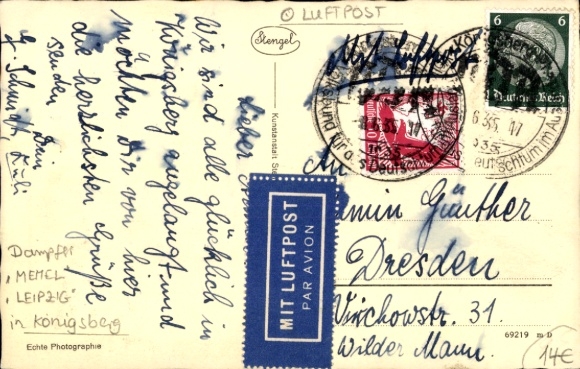 LUFTPOST
Stengel
Mit Luftpost
Lieber
Wir sind alle glücklich in
Königsberg angelangt und
möchten Dir von hier
die herzlichsten Grüße
senden
Dein
G. Schmidt
Dampfer
"MEMEL"
"LEIPZIG"
in Königsberg
Echte Photographie
Kunstanstalt Ste
MIT LUFTPOST
PAR AVION
6
6
Deutsches Reich
6.35. 17
An
Günther
Dresden
Virchowstr. 31.
Wilder Mann.
69219 m D
14€